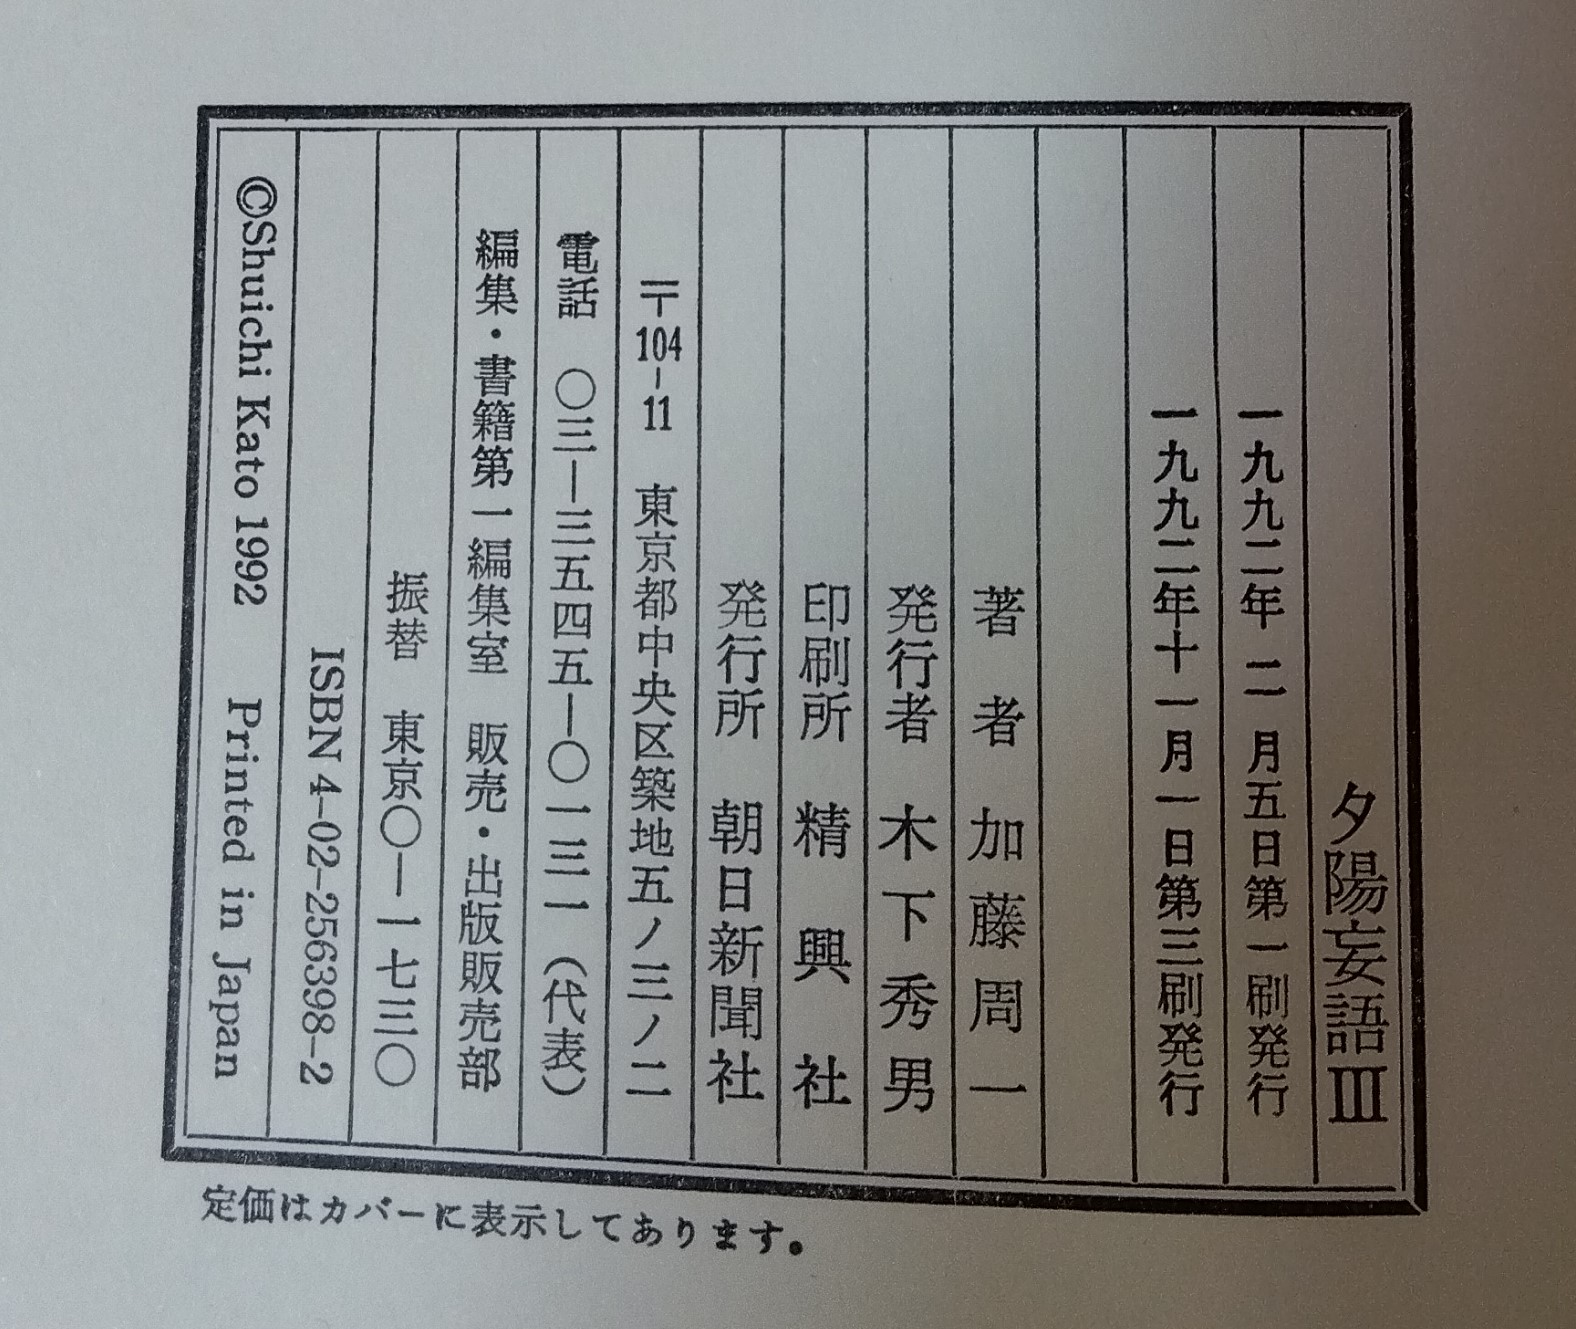 夕陽妄語Ⅲ
一九九二年 二 月五日第一刷発行
一九九二年十一月一日第三刷発行
著 者 加藤周一
発行者 木下秀男
印刷所 精興社
発行所 朝日新聞社
〒104-11 東京都中央区築地五ノ三ノ二
電話 〇三―三五四五―〇一三一（代表）
編集・書籍第一編集室 販売・出版販売部
振替 東京〇―一七三〇
ISBN 4-02-256398-2
©Shuichi Kato 1992 Printed in Japan
定価はカバーに表示してあります。